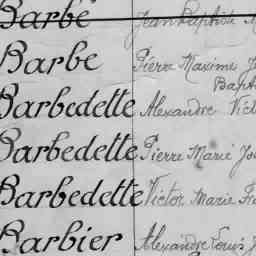 Barbe Jean Baptiste
Barbe Pierre Maxime
Bapt
Barbedette Alexandre Vict
Barbedette Pierre Marie Jos
Barbedette Victor Marie Fr
Barbier Alexandre Louis J